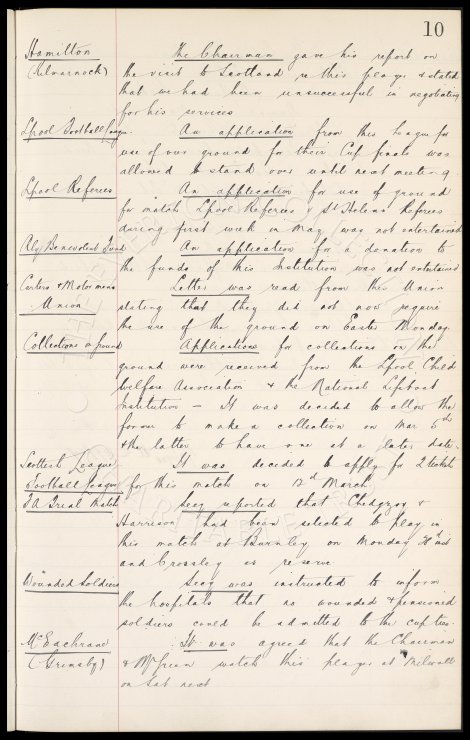 10
Hamilton The Chairman gave his report on
(Kilmarnock) the visit to Scotland re this player & stated
that we had been unsuccessful in negotiating
for his services
Lpool Football League. An application from this League for
use of our ground for their Cup finals was
allowed to stand over until next meeting
Lpool Referees An application for use of ground
for match Lpool Referees v St Helens Referees
during first week in May was not entertained
Aly Benevolent Fund An application for a donation to
the funds of this Institution was not entertained
Carters & Motormens Letter was read from this Union
Union stating that they did not now require
the use of the ground on Easter Monday.
Collections on ground Applications for collections on the
ground were received from the Lpool Child
Welfare Association & the National Lifeboat
Institution – It was decided to allow the
former to make a collection on Mar 5th
& the latter to have one at a later date.
Scottish League It was decided to apply for 2 tickets
Football League for this match on 12th March
FA Trial Match Secy reported that Chedgzoy &
Harrison had been selected to play in
this match at Burnley on Monday inst
and Crossley as reserve
Wounded Soldiers Secy was instructed to inform
the hospitals that no wounded & pensioned
soldiers could be admitted to the cup ties.
McEachrane It was agreed that the Chairman
(Grimsby) & watch this player at Millwall
on Sat next